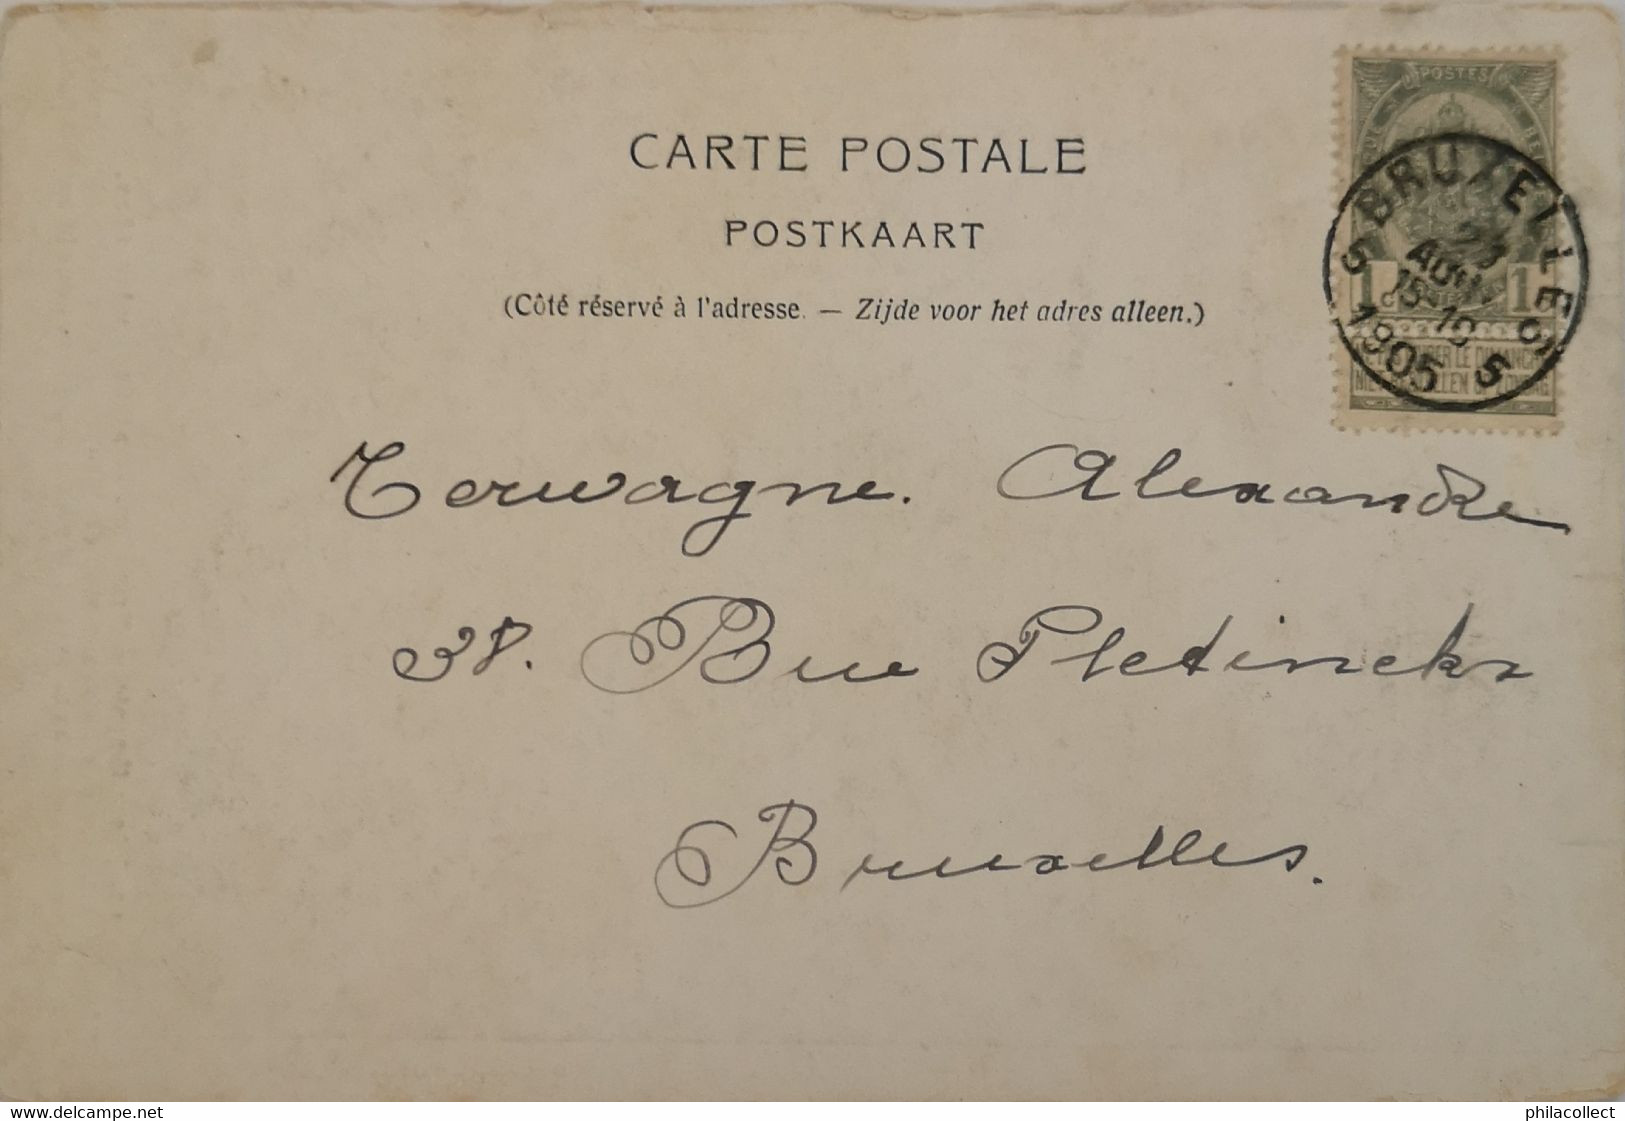 CARTE POSTALE
POSTKAART
(Côté réservé à l'adresse. — Zijde voor het adres alleen.)
POSTES
1 1
BRUXELLES
5 5
AOUT
15-
1905
Terwagne. Alexandre
38. Rue Pletinckx
Bruxelles.
www.delcampe.net
philacollect